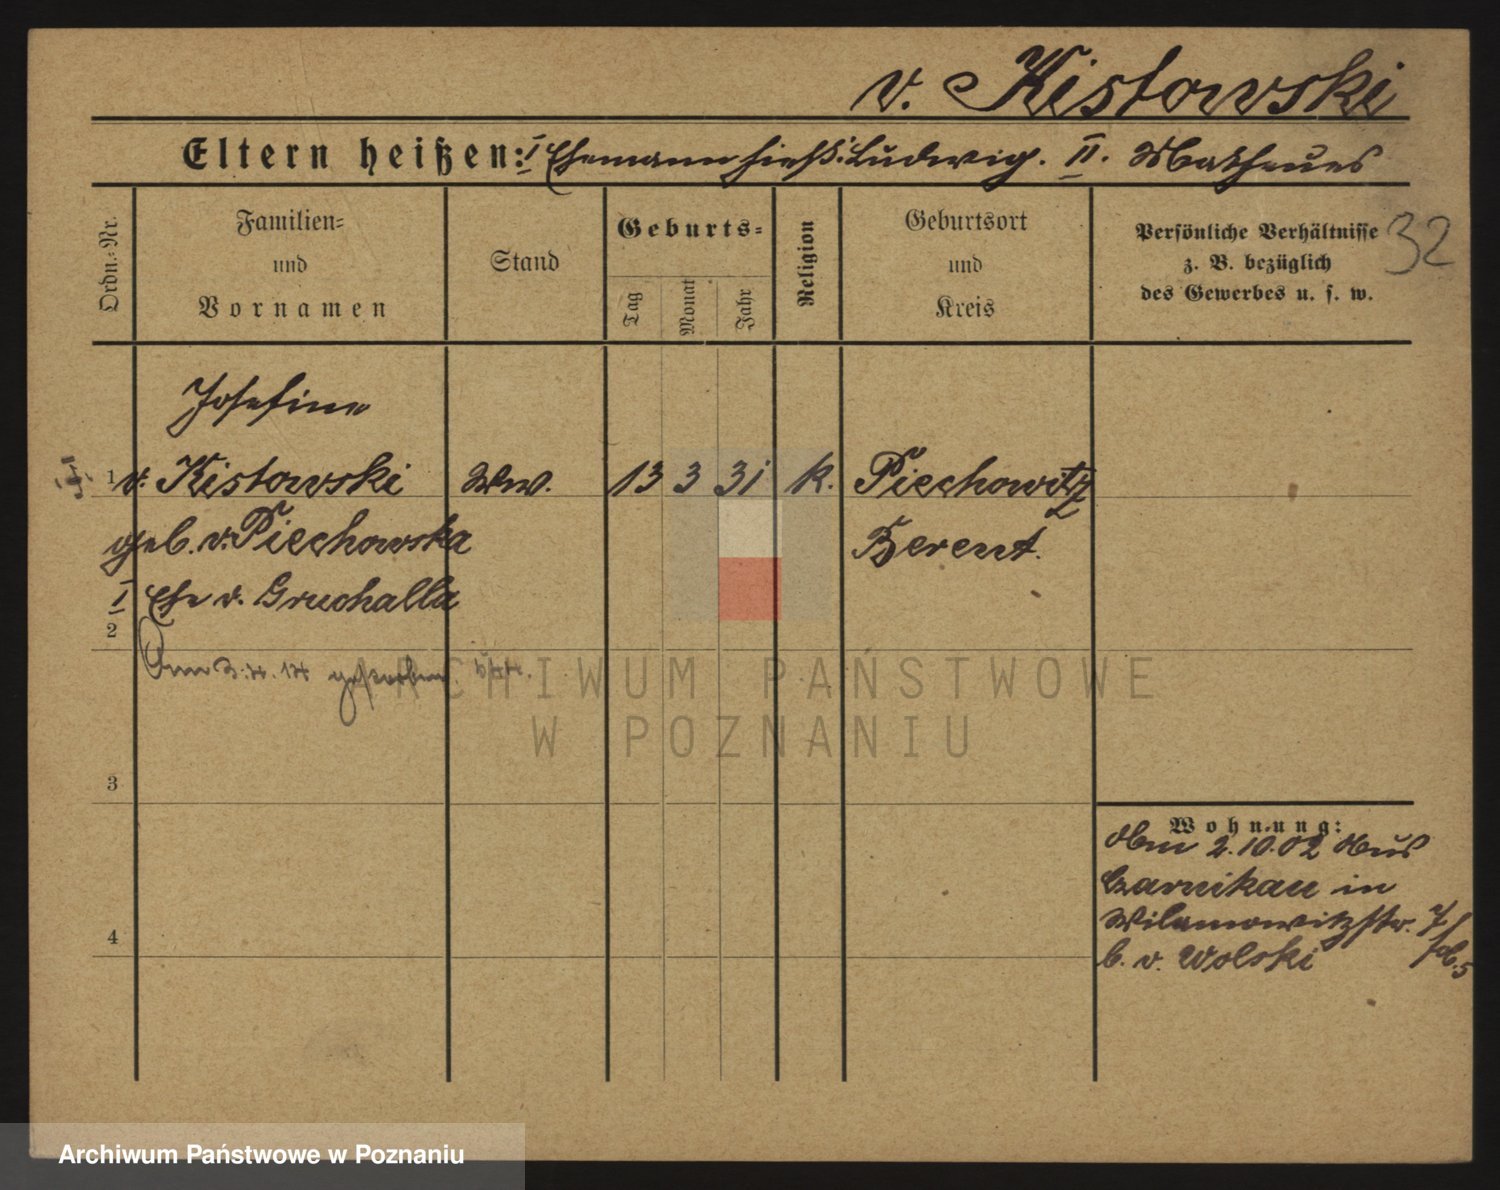 v. Kistowski
Eltern heißen: I Ehemann hieß: Ludwig. II. Matheus
Ordn.-Nr.
Familien-
und
Vornamen
Stand
Geburts-
Tag
Monat
Jahr
Religion
Geburtsort
und
Kreis
Persönliche Verhältnisse
z. B. bezüglich
des Gewerbes u. s. w.
32
Josefine
1 v. Kistowski Ww. 13 3 31 k. Piechowitz
geb. v. Piechowska Berent.
I Ehe v. Gruchalla
2
Am 3. 4. 14 gestorben.
ARCHIWUM PAŃSTWOWE
W POZNANIU
3
Wohnung:
Am 2.10.02 aus
Czarnikau in
Wilamowitzstr. 7
b. v. Wolski
4
Archiwum Państwowe w Poznaniu